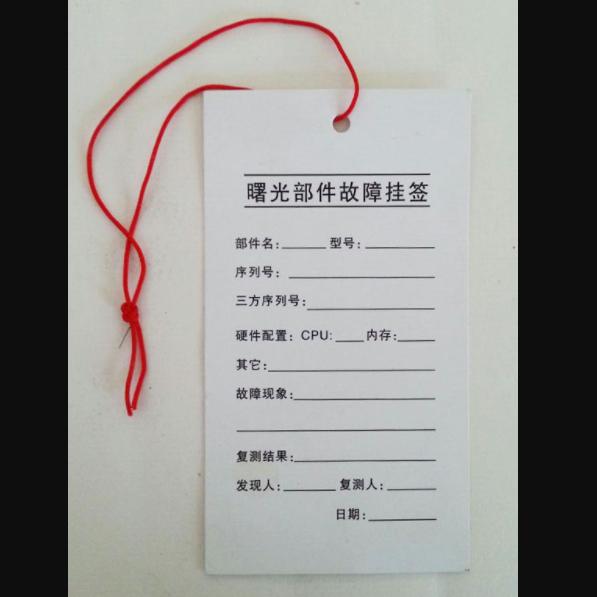 曙光部件故障挂签
部件名:______ 型号:__________
序列号:____________________
三方序列号:__________________
硬件配置: CPU:____ 内存:_____
其它:_______________________
故障现象:____________________
____________________________
复测结果:____________________
发现人:_______ 复测人:_______
日期:_________